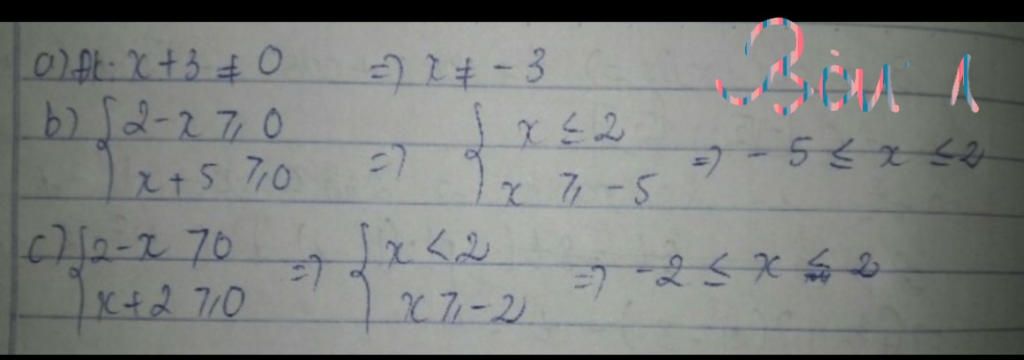 a) đk: x + 3 ≠ 0 => x ≠ -3
Bài 1
b) { 2 - x ≥ 0 => { x ≤ 2 => -5 ≤ x ≤ 2
x + 5 ≥ 0 x ≥ -5
c) { 2 - x > 0 => { x < 2 => -2 ≤ x ≤ 2
x + 2 ≥ 0 x ≥ -2